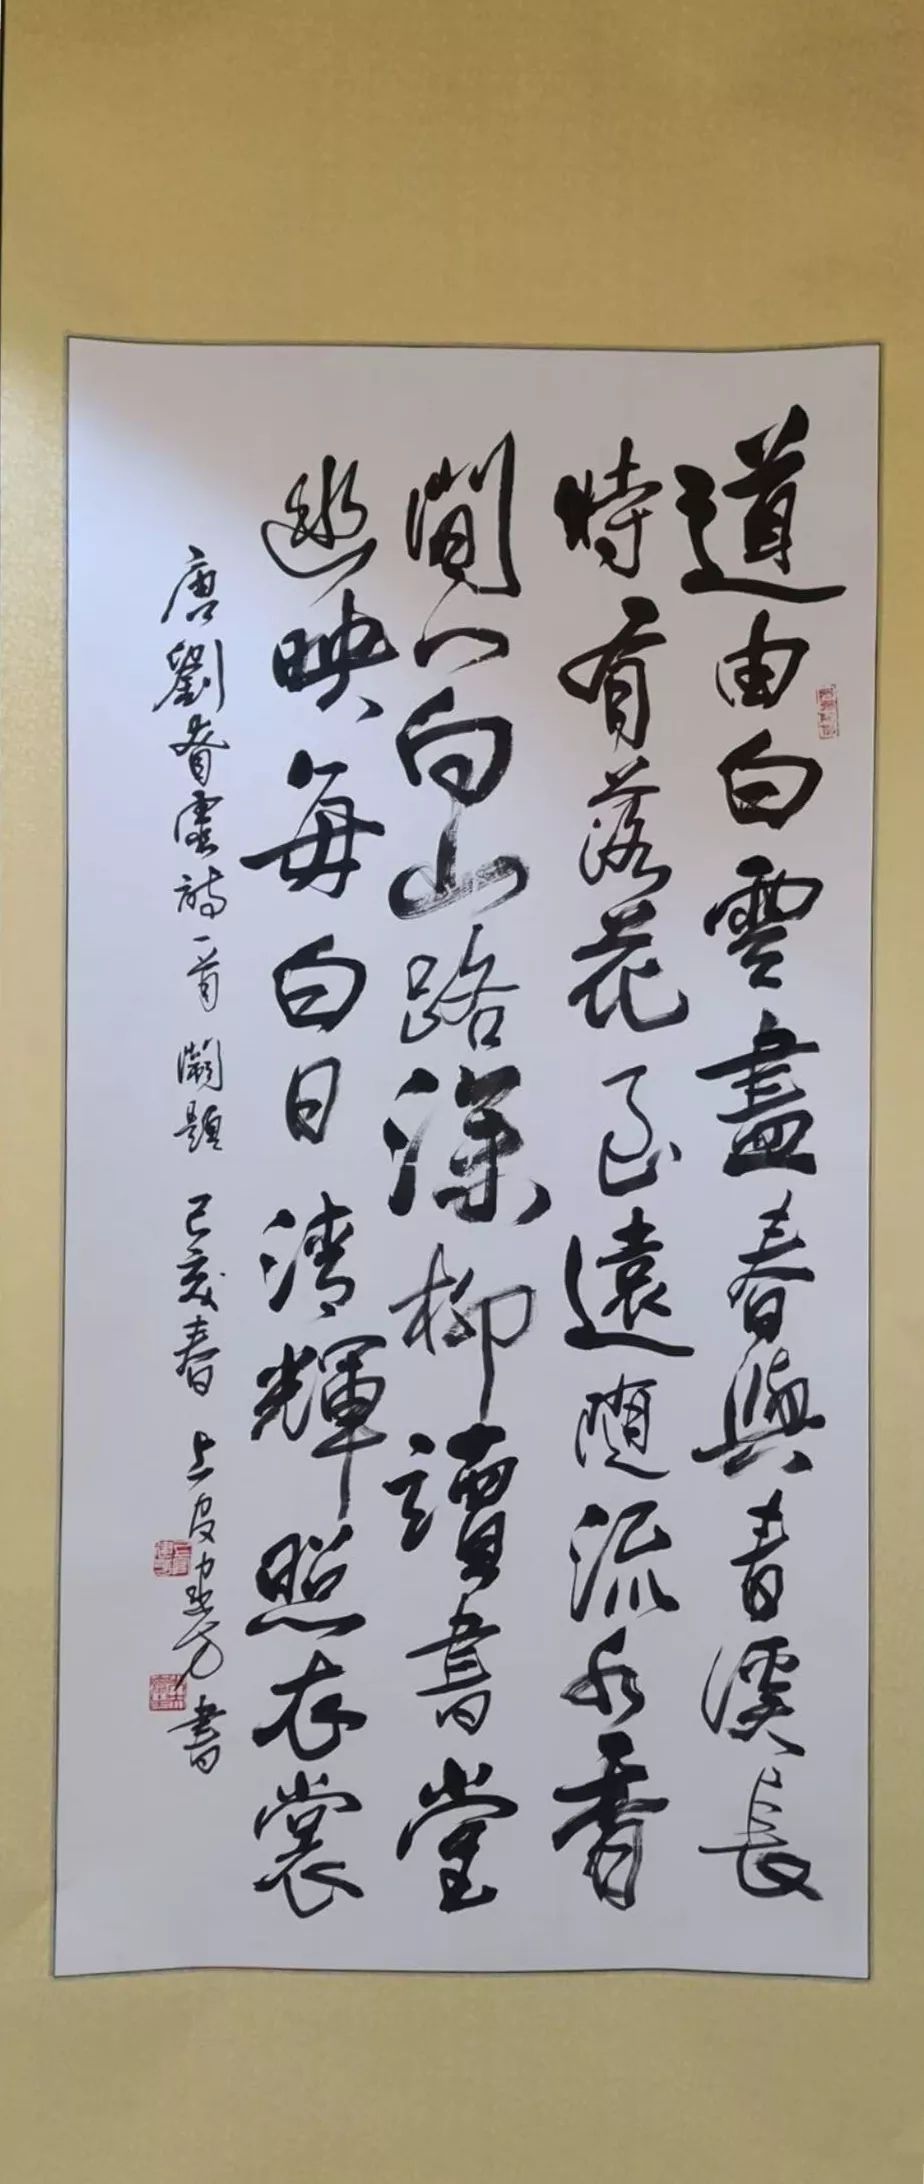 道由白雲盡春與青溪長
時有落花至遠隨流水香
閒門向山路深柳讀書堂
幽映每白日清輝照衣裳
唐劉眘虛詩一首 闕題 己亥春 書